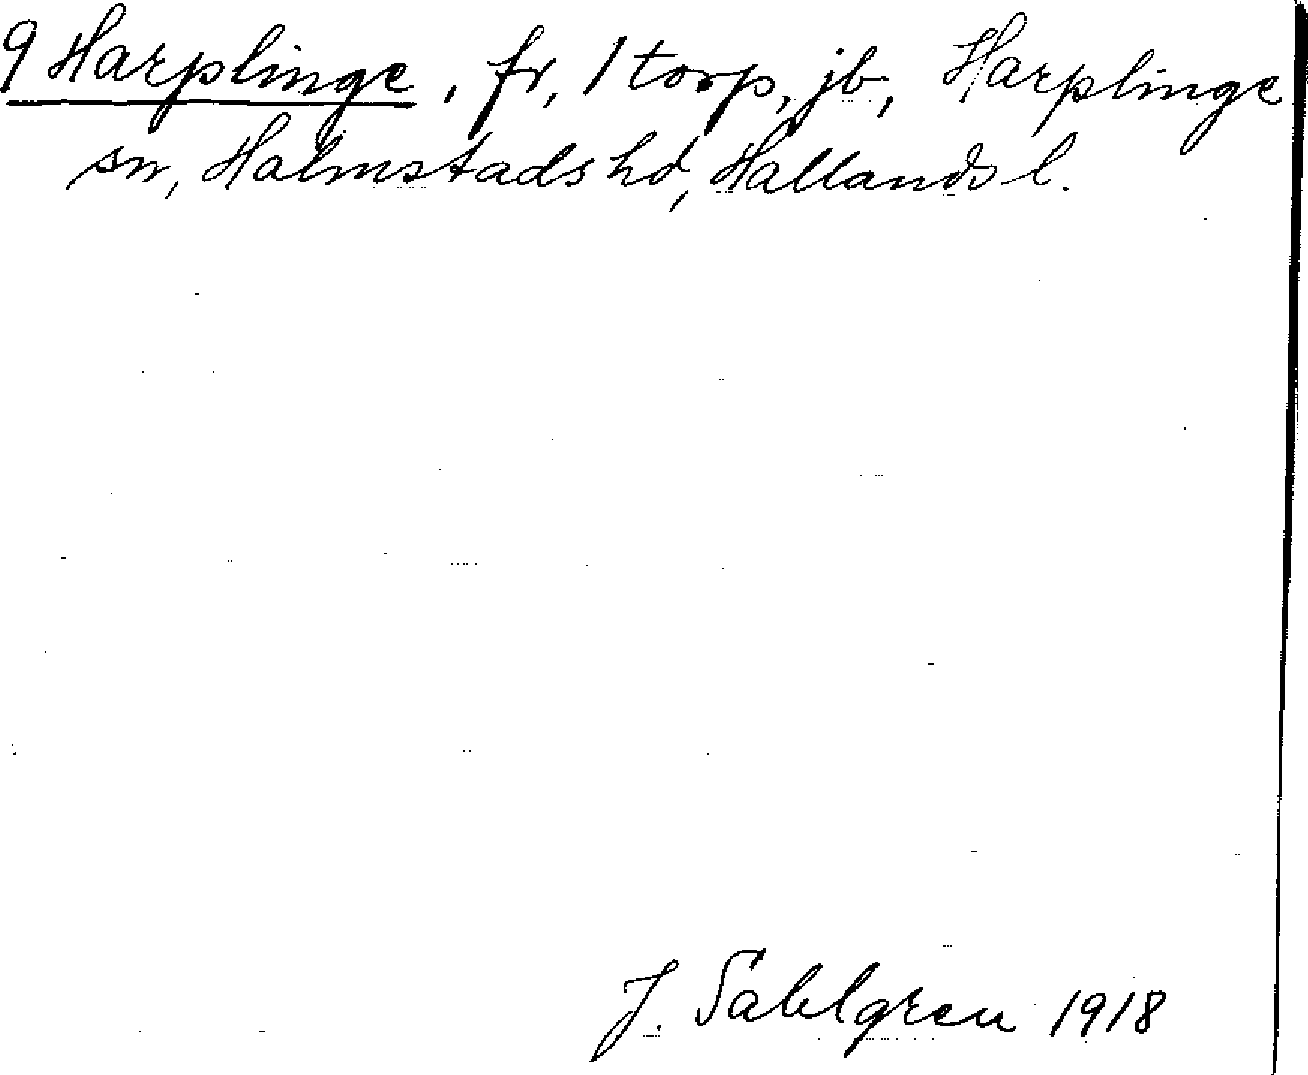 9 Harplinge, fr, 1 torp, jb, Harplinge
sn, Halmstads hd, Hallands l.
J. Sahlgren 1918